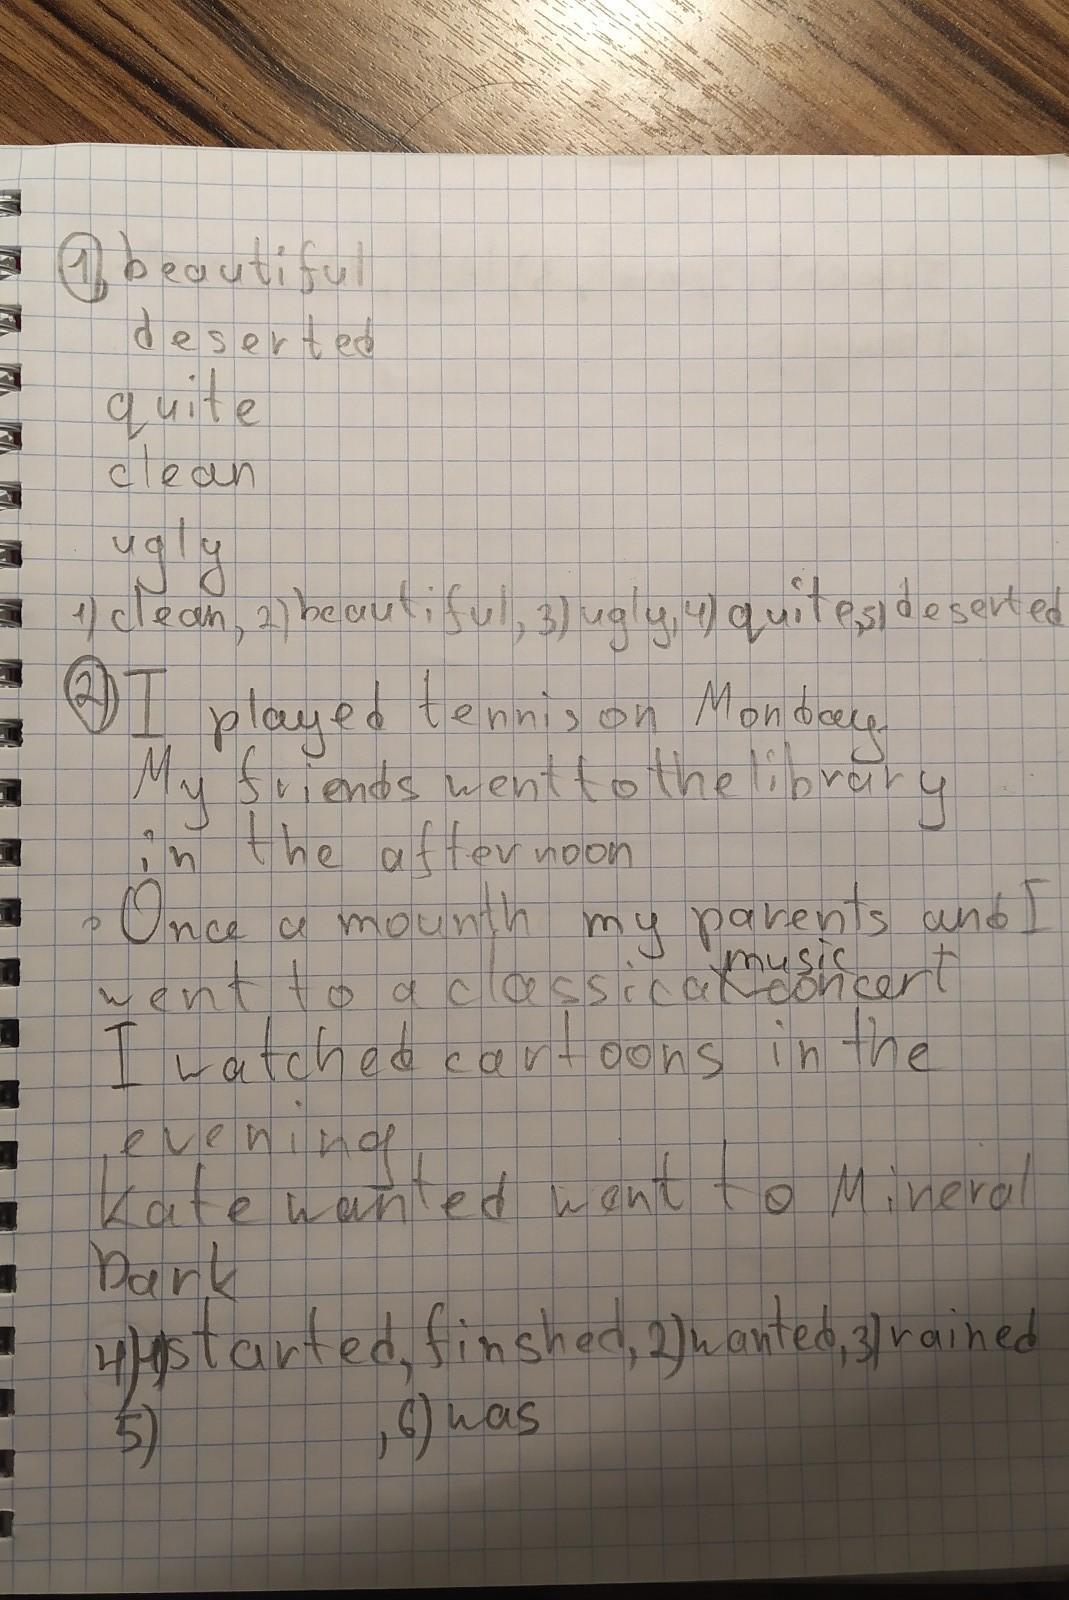 1) beautiful
deserted
quite
clean
ugly
1) clean, 2) beautiful, 3) ugly, 4) quite, 5) deserted
2) I played tennis on Monday.
My friends went to the library
in the afternoon
Once a mounth my parents and I
music
went to a classical concert
I watched cartoons in the
evening
Kate wanted went to Mineral
Park
4) 1) started, finshed, 2) wanted, 3) rained
5) , 6) was